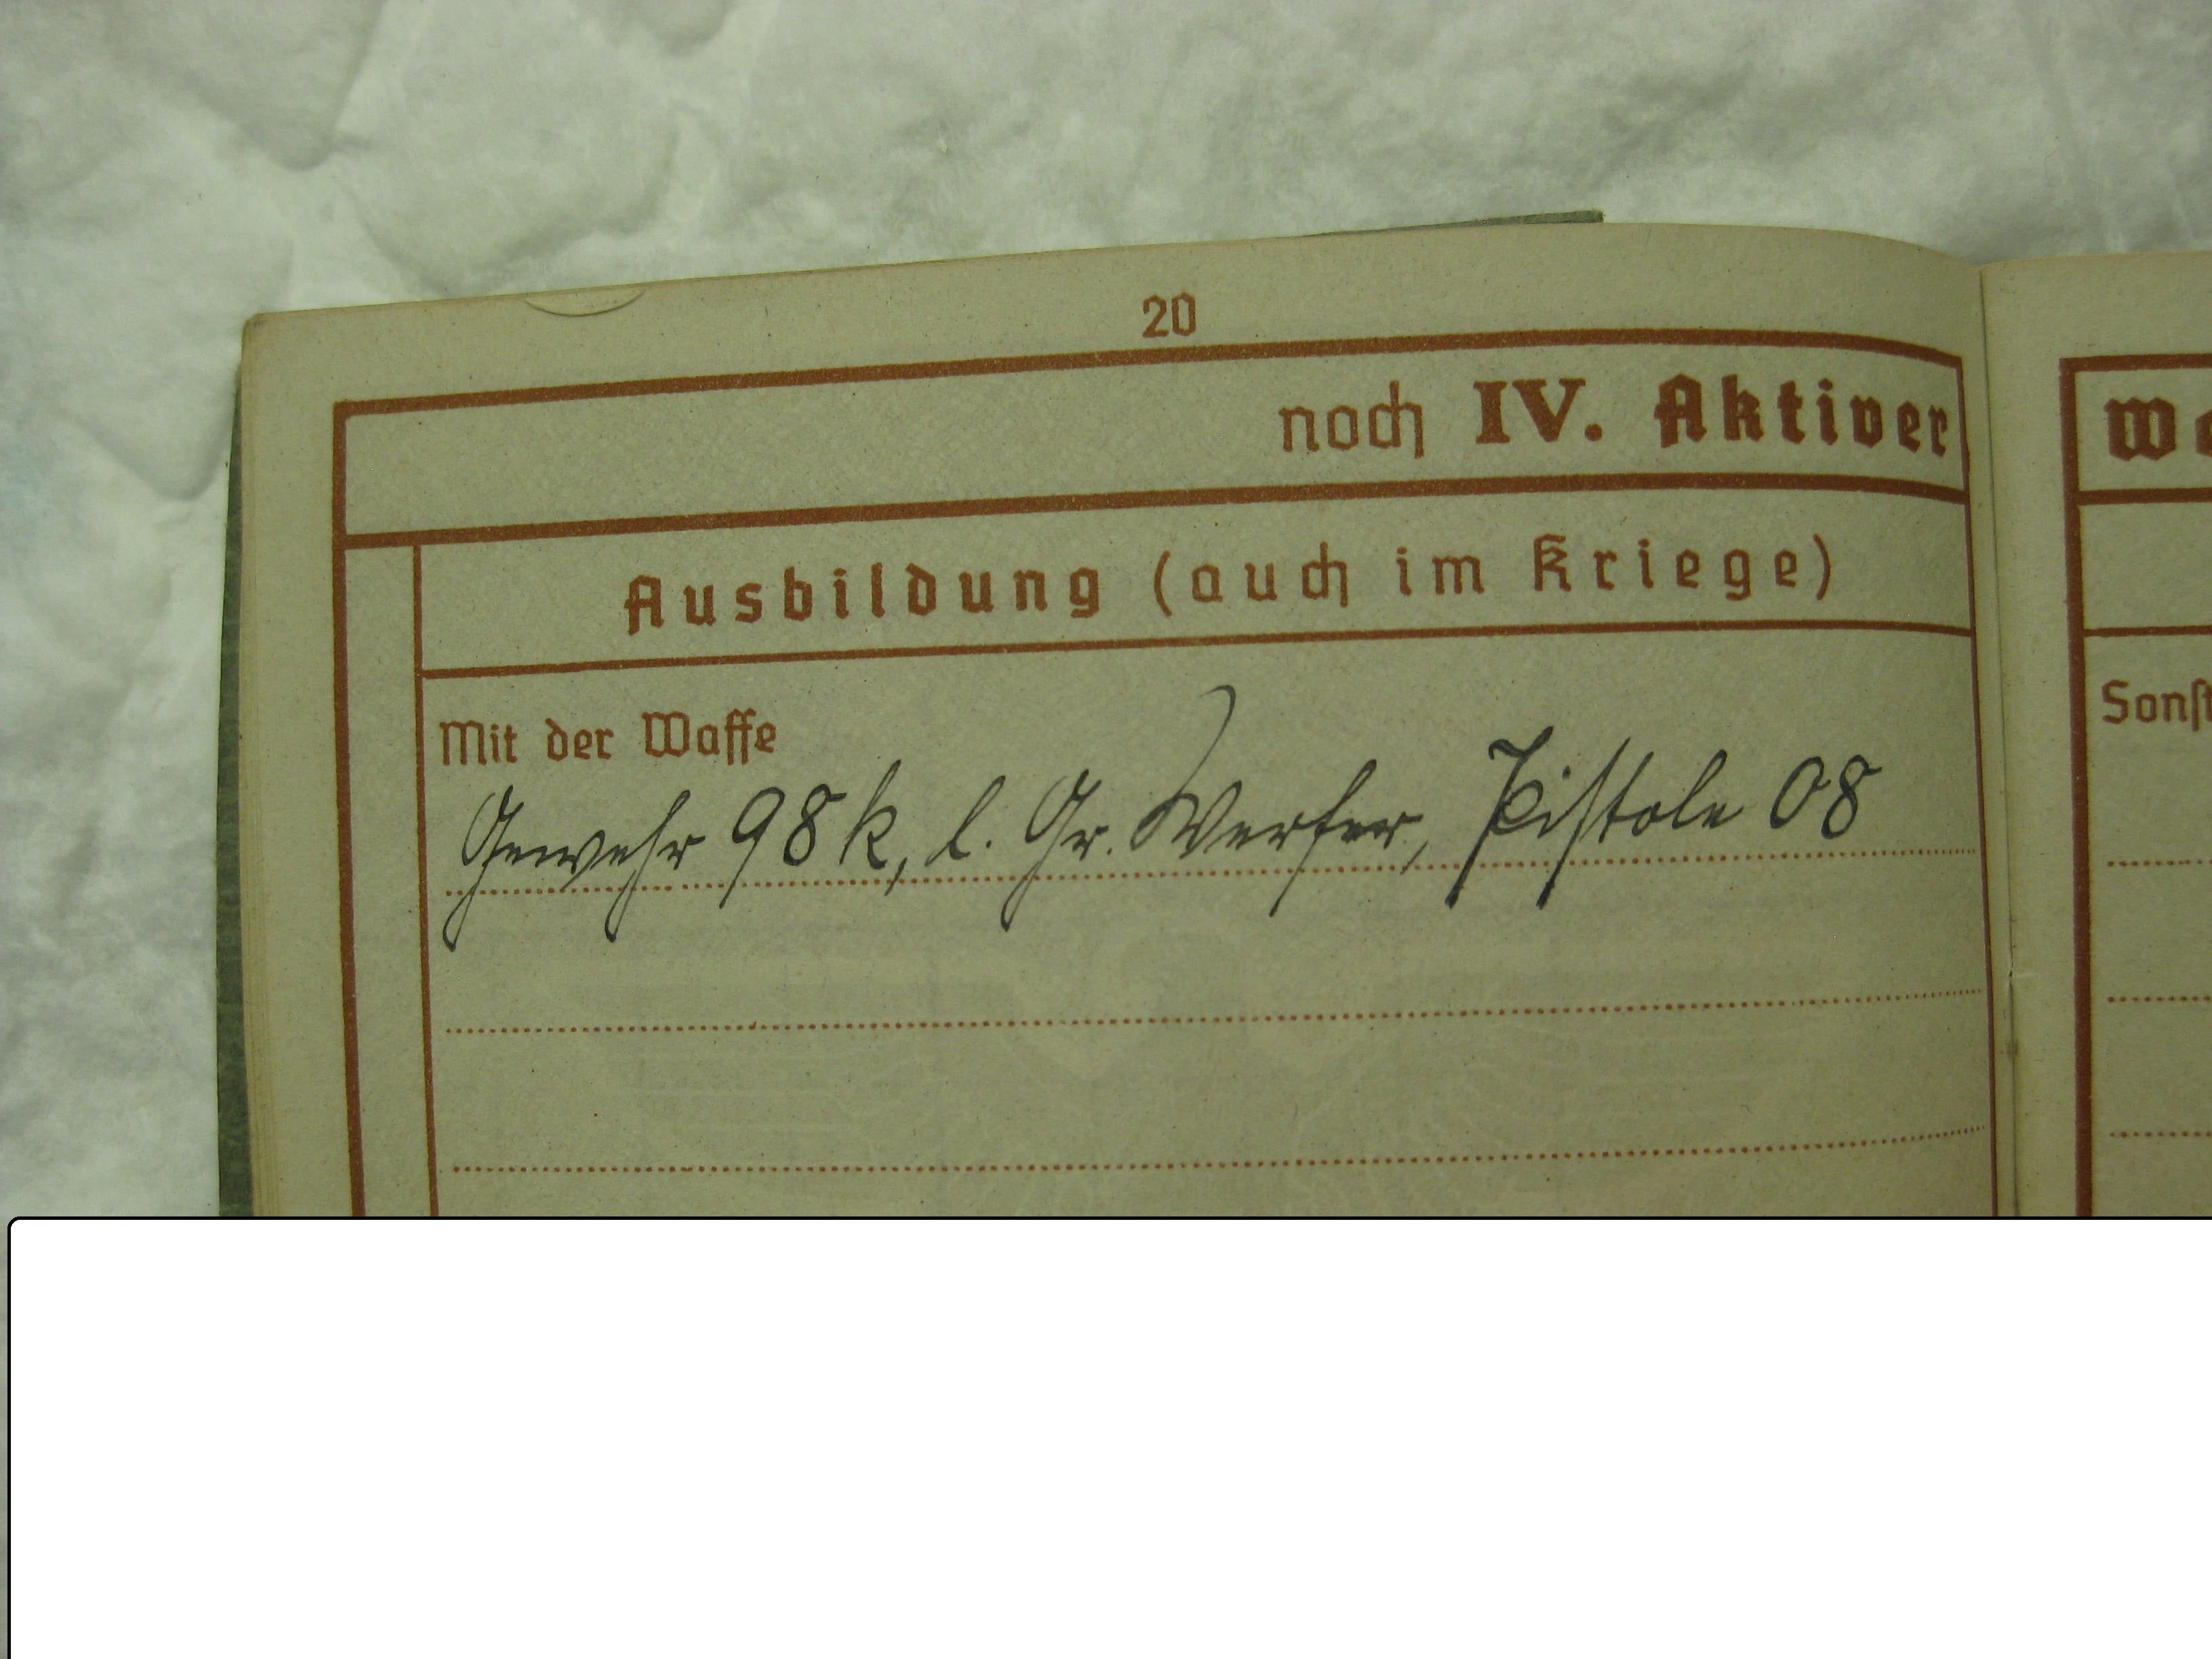 20
noch IV. Aktiver
Ausbildung (auch im Kriege)
Mit der Waffe
Gewehr 98k, l. Gr. Werfer, Pistole 08